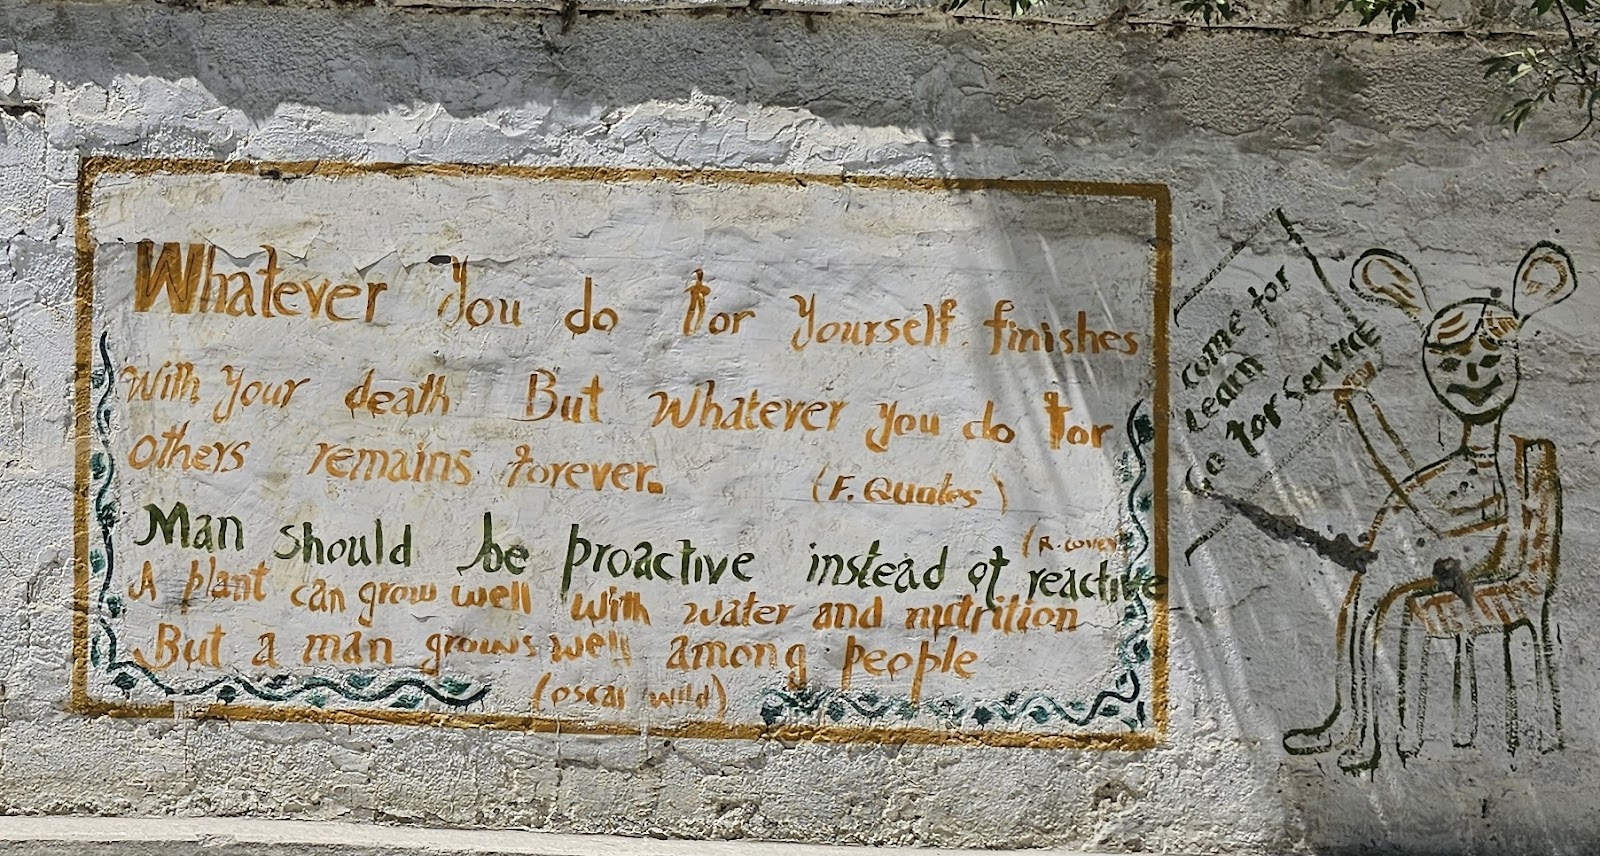 Whatever you do for yourself finishes
with your death But whatever you do for
others remains forever.
(F. Quotes)
Man should be proactive instead of reactive
(R. Covey)
A plant can grow well with water and nutrition
But a man grows well among people
(oscar wild)
come for
Learn
Go for Service